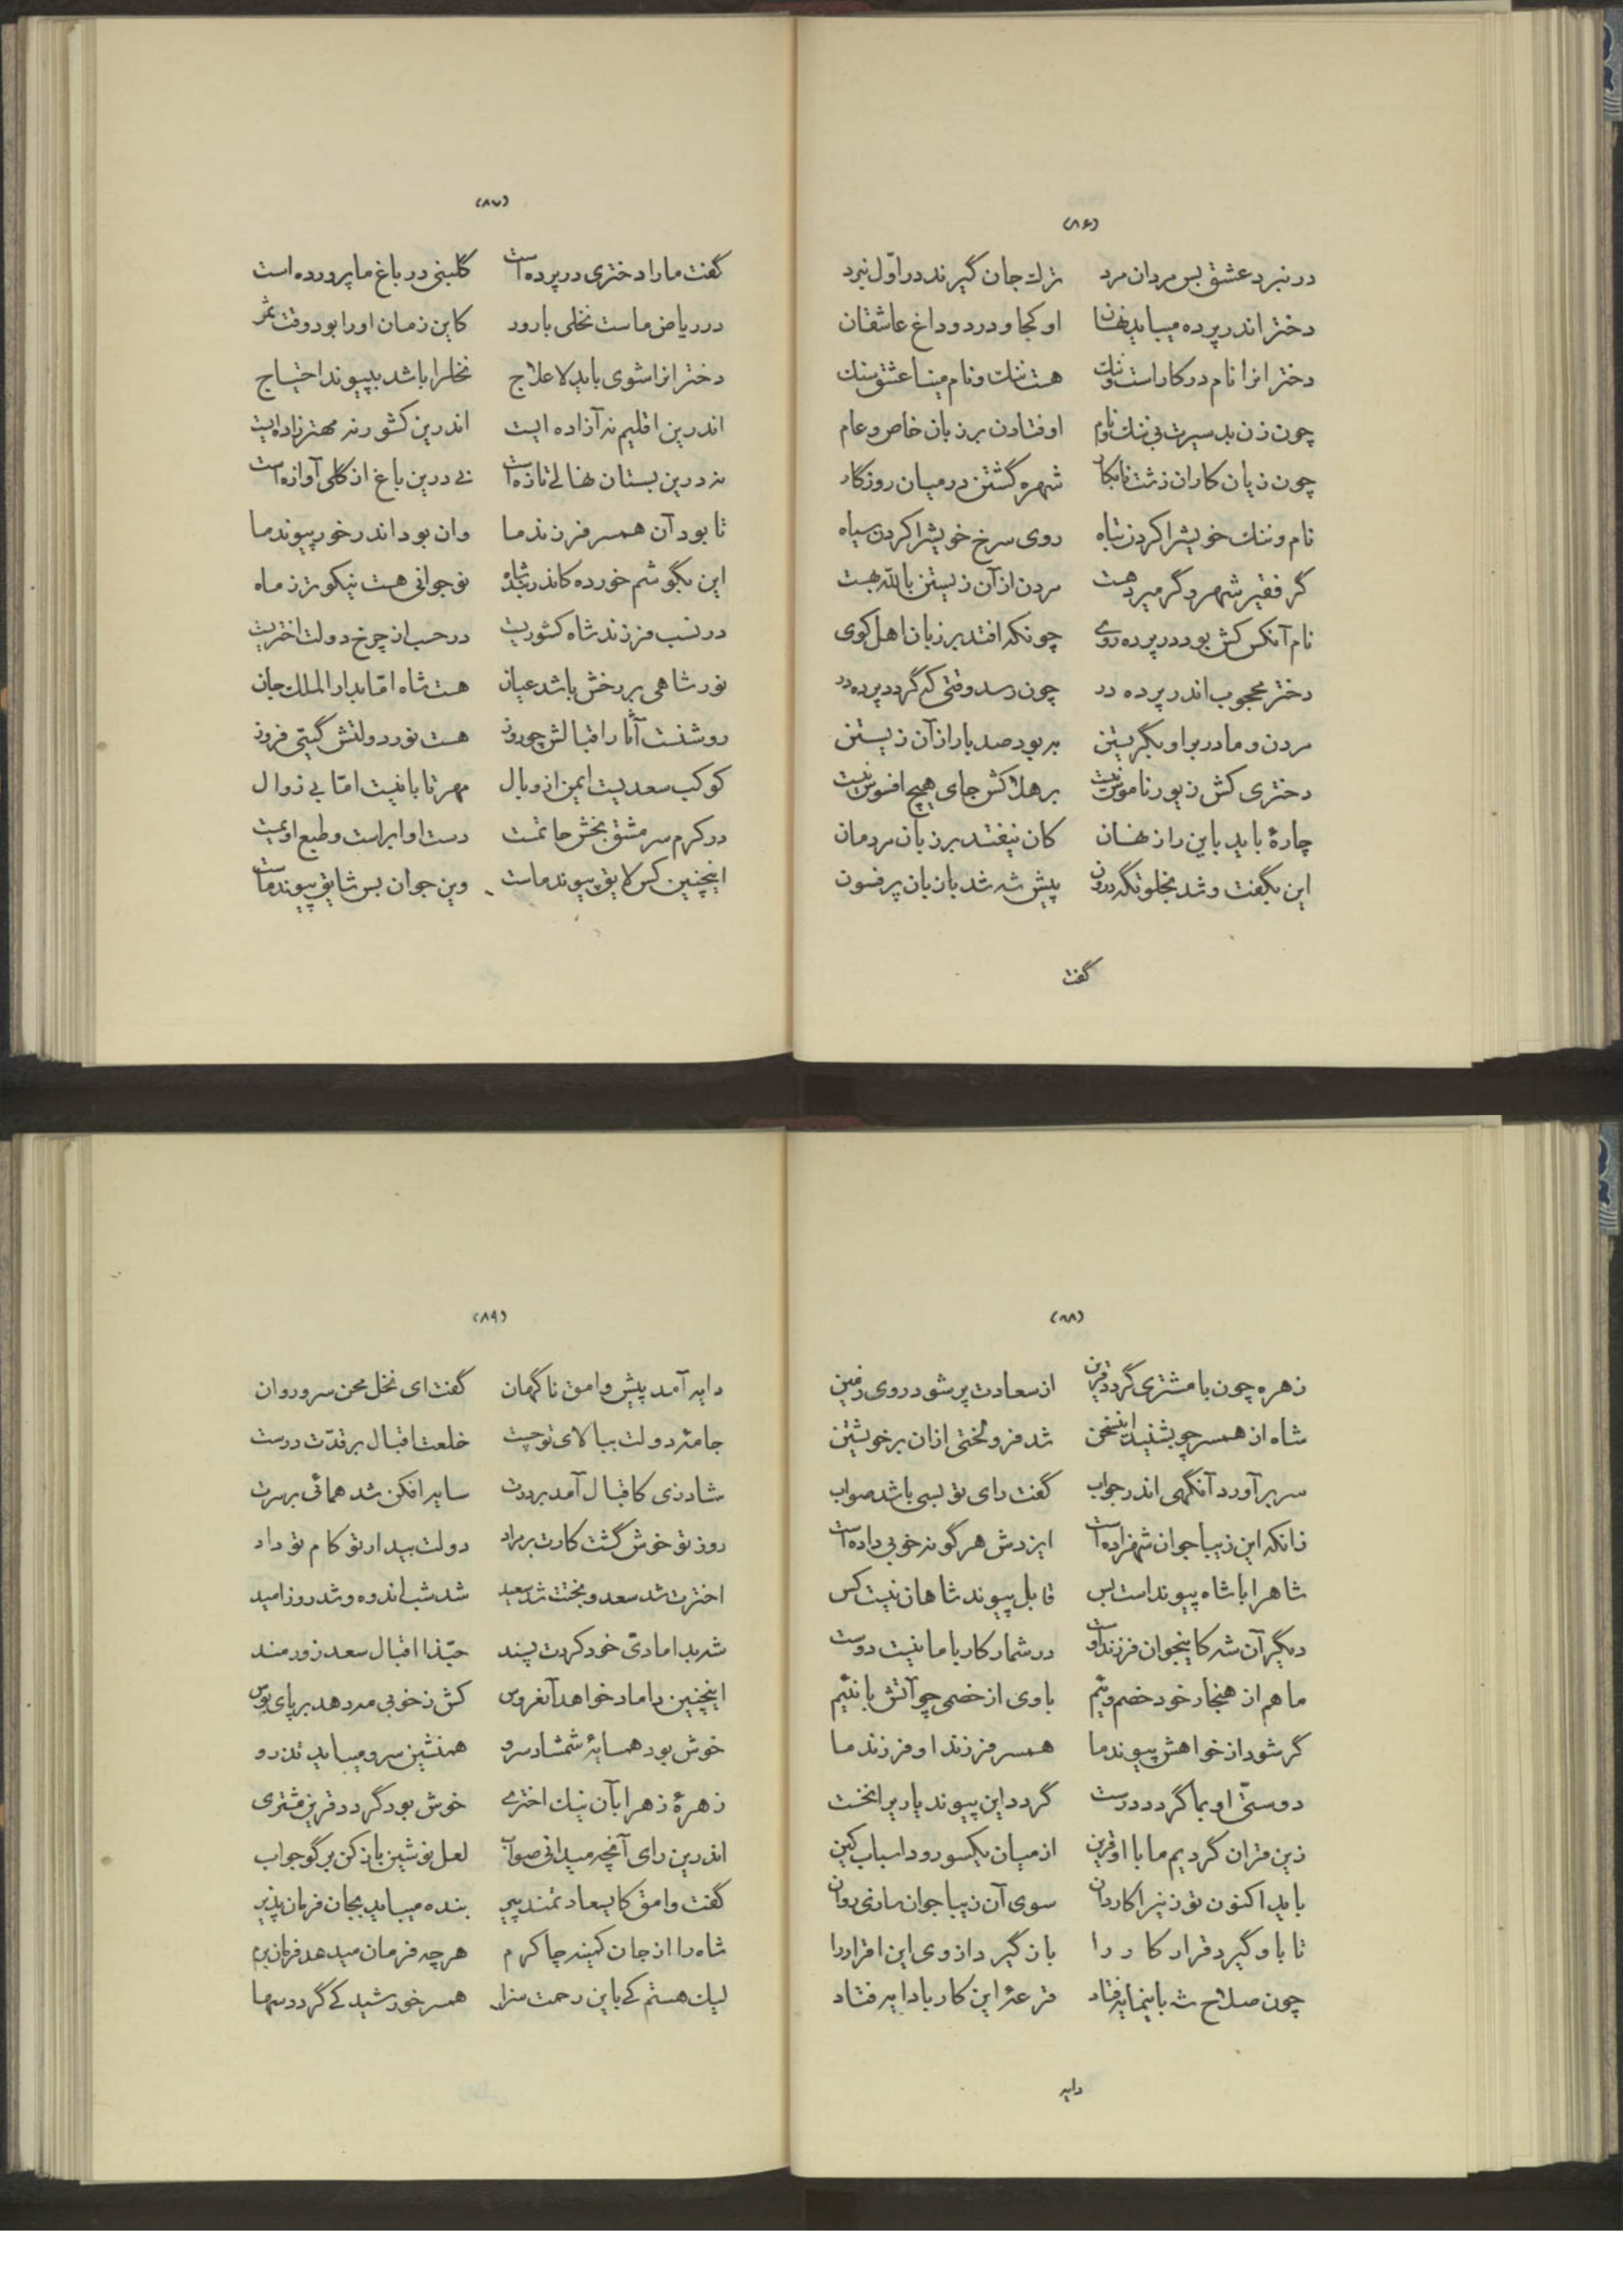 (۸۶)
در نبرد عشق بس مردان مرد ترك جان گیرند در اوّل نبرد
دختر اندر پرده میباید نهان او کجا و درد و داغ عاشقان
دختر انرا نام در کار است و ننك هست ننك و نام مینا عشق سنك
چون زن بد سیرت بی ننك و نام اوفتادن بر زبان خاص و عام
چون زیان کاران زشت نابکار شهره گشتن در میان روزگار
نام و ننك خویشرا کردن تباه روی سرخ خویشرا کردن سیاه
گر فقیر شهر و گر میر دهست مردن از آن زیستن بالله بهست
نام آنکس کش بود در پرده روی چونکه افتد بر زبان اهل کوی
دختر محجوب اندر پرده در چون رسد وقتی که گردد پرده در
مردن و مادر بر او بگریستن به بود صد بار از آن زیستن
دختری کش زیور ناموس نیست بر هلاکش جای هیچ افسوس نیست
چارهٔ باید باین راز نهان کان نیفتد بر زبان مردمان
این بگفت و شد بخلوتگه درون پیش شه شد با زبان پر فسون
گفت
(۸۷)
گفت ما را دختری در پرده است گلبنی در باغ ما پرورده است
در ریاض ماست نخلی بارور کاین زمان او را بود وقت ثمر
دختر انرا شوی باید لاعلاج نخلرا باشد بپیوند احتیاج
اندرین اقلیم نه آزاده ایست اندرین کشور نه مهتر زاده ایست
نه درین بستان نهالی تازه است نی درین باغ از گلی آوازه است
تا بود آن همسر فرزند ما وان بود اندر خور پیوند ما
این بگوشم خورده کاندر بند شاه نوجوانی هست نیکو تر ز ماه
در نسب فرزند شاه کشوریست در حسب از چرخ دولت اختریست
نور شاهی بر رخش باشد عیان هست شاه امّا بدار الملك جان
روشنست آثار اقبالش چو روز هست نور دولتش گیتی فروز
کوکب سعدیست ایمن از وبال مهر تابانیست امّا بی زوال
در کرم سرمشق بخش حاتمست دست او ابر است و طبع او یمست
اینچنین کس لایق پیوند ماست وین جوان بس شایق پیوند ماست
(۸۸)
زهره چون با مشتری گردد قرین از سعادت پر شود روی زمین
شاه از همسر چو بشنید اینسخن شد فرو لختی ازان بر خویشتن
سر بر آورد آنگهی اندر جواب گفت رای تو بسی باشد صواب
زانکه این زیبا جوان شهزاده است ایزدش هر گونه خوبی داده است
شاهرا با شاه پیوند است بس قابل پیوند شاهان نیست کس
دیگر آن شه کاینجوان فرزند اوست در شمار کار با ما نیست دوست
ما هم از هنجار خود خصم ویم با وی از خصمی چو آتش با نئیم
گر شود از خواهش پیوند ما همسر فرزند او فرزند ما
دوستیّ او بما گردد درست گردد این پیوند پا بر از نخست
زین قران گردیم ما با او قرین از میان یکسو رود اسباب کین
باید اکنون تو زنیرا کاردان سوی آن زیبا جوان سازی روان
تا باو گیرد قرار کار را باز گیرد از وی این اقرار را
چون صلاح شه باینجا بر فتاد قرعهٔ این کار با دایه فتاد
دایه
(۸۹)
دایه آمد پیش وامق ناگهان گفت ای نخل محن سرو روان
جامهٔ دولت ببالای تو چست خلعت اقبال بر قدّت درست
شاد زی کاقبال آمد بر درت سایه افکن شد همائی بر سرت
روز تو خوش گشت کارت بر مراد دولت بیدار تو کام تو داد
اخترت شد سعد و بختت شد سعید شد شب اندوه و شد روز امید
شه بدامادیّ خود کردت پسند حبّذا اقبال سعد زورمند
اینچنین داماد خواهد آنعروس کش ز خوبی مه دهد بر پای بوس
خوش بود همسایهٔ شمشاد سرو همنشین سرو میباید تذرو
زهرهٔ زهرا بآن نیك اختری خوش بود گردد قرین مشتری
اندرین رای آنچه میدانی صواب لعل نوشین باز کن بر گو جواب
گفت وامق کایسعادتمند پیر بنده میباید بجان فرمان پذیر
شاه را از جان کمینه چاکرم هر چه فرمان میدهد فرمان برم
لیك هستم کی باین رحمت سزا همسر خورشید کی گردد سها